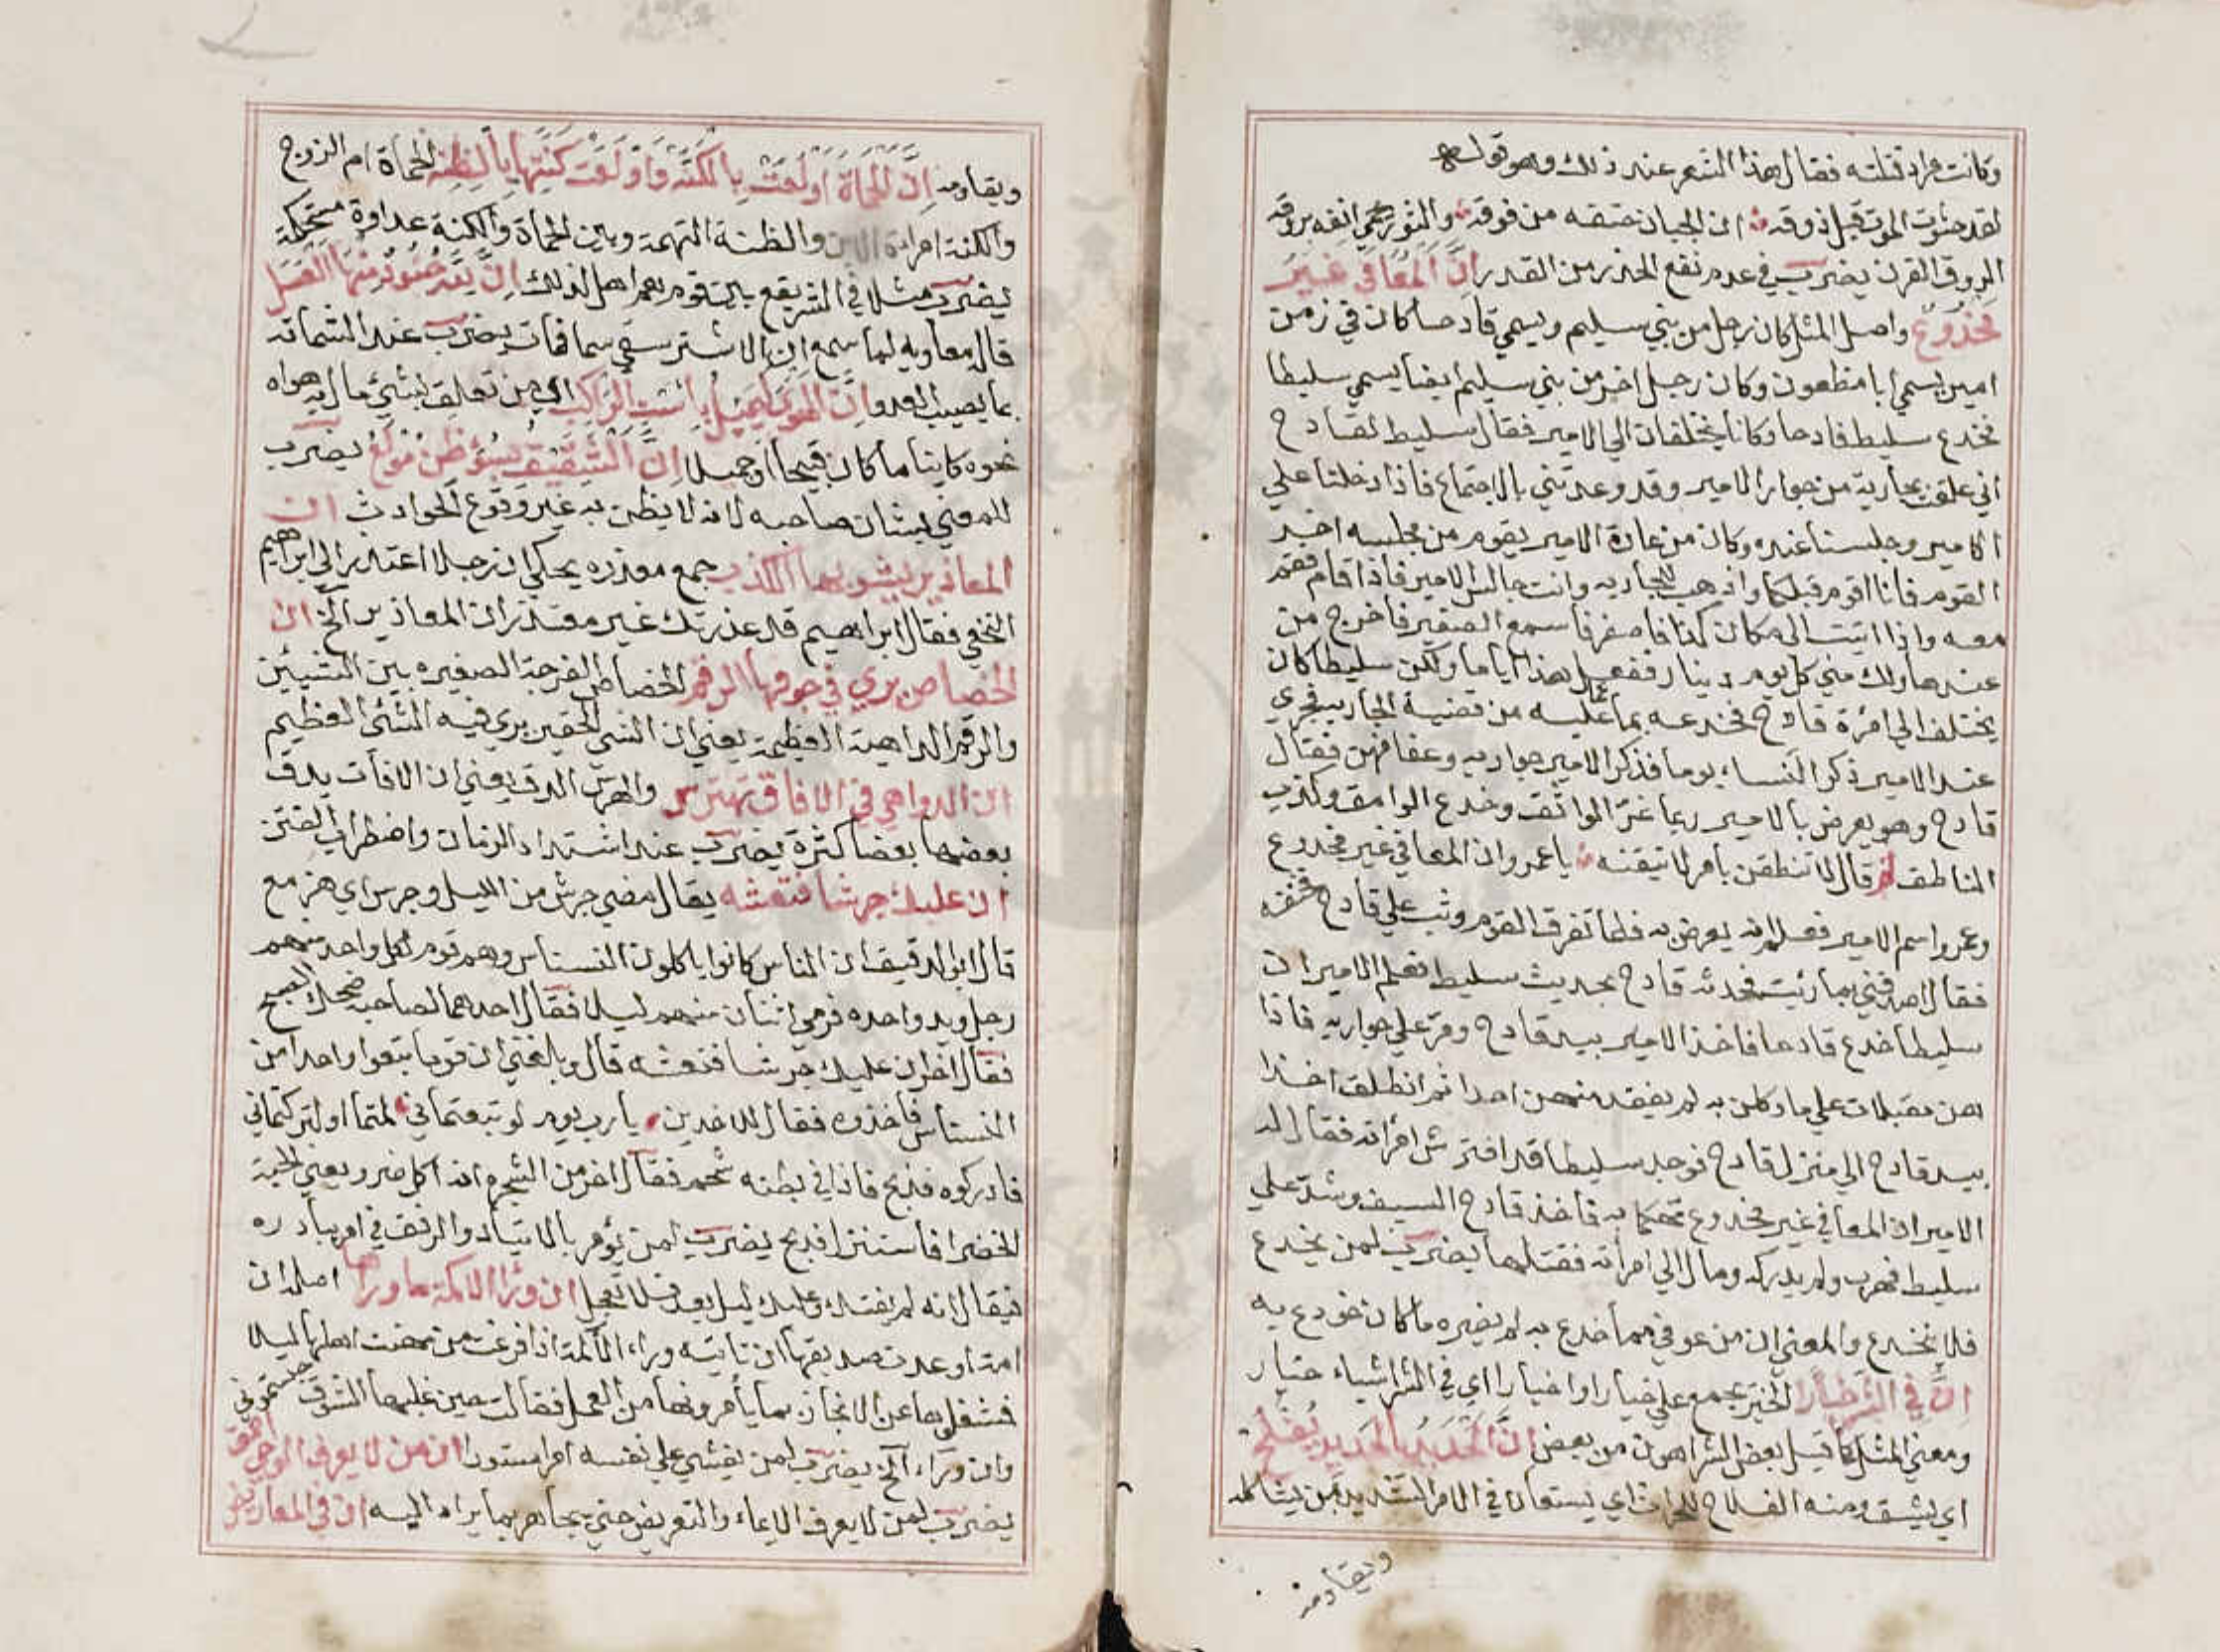 وكانت مراد قتلته فقال هذا الشعر عند ذلك وهو قوله
لقد حثوت الموت قبل ذوقه ان الجبان حتفه من فوقه والثور يحمي انفه بروقه
الروق القرن يضرب في عدم نفع الحذر من القدر إنَّ المُعَافَى غَيْرُ
مَخْدُوعٍ واصل المثل كان رجل من بني سليم ويسمي قادحا كان في زمن
امير يسمي ابا مظعون وكان رجل اخر من بني سليم ايضا يسمي سليطا
فخدع سليط قادحا وكانا يختلفان الي الامير فقال سليط لقادح
اني علقت بجارية من جوار الامير وقد وعدتني بالاجتماع فاذا دخلنا علي
الامير وجلسنا عنده وكان من عادة الامير يقوم من مجلسه اخر
القوم فانا اقوم قبلكما واذهب للجاريه وانت جالس الامير فاذا قام فقم
معه واذا اتيت الي مكان كذا فاصفر فاسمع الصفير فاخرج من
عندها ولك مني كل يوم دينار ففعل هذا اياما ولكن سليطا كان
يختلف الي امرة قادح فخدعه بما عليه من قضية الجاريه فجري
عند الامير ذكر النساء يوما فذكر الامير جواريه وعفافهن فقال
قادح وهو يعرض بالامير ربما غرّ الواثق وخدع الوامق وكذب
الناطق ثم قال لا تنطقن بامر لا تيقنه يا عمرو ان المعافي غير مخدوع
وعمرو اسم الامير فعلم انه يعرض به فلما تفرق القوم وثب علي قادح فخنقه
فقال اصدقني بما رئيت فحدثه قادح بحديث سليط فعلم الامير ان
سليطا خدع قادحا فاخذ الامير بيد قادح ومرّ علي جواريه فاذا
هن مقبلات علي ما وكلن به لم يفقد منهن احدا ثم انطلق اخذا
بيد قادح الي منزل قادح فوجد سليطا قد افترش امرأته فقال له
الامير ان المعافي غير مخدوع تهكما به فاخذ قادح السيف وشدّ علي
سليط فهرب ولم يدركه ومال الي امرأته فقتلها يضرب لمن يخدع
فلا ينخدع والمعني ان من عوفي مما خدع به لم يضره ما كان خودع به
إنَّ في الشَّرِّ خِيَارًا الخير يجمع علي خيار او اخيار اي في الشر اشياء خيار
ومعني المثل كما قيل بعض الشر اهون من بعض إنَّ الحَدِيدَ بِالحَدِيدِ يُفْلَحُ
اي يشق ومنه الفلاح للحراث اي يستعان في الامر الشديد بمن يشاكله
ويقاومه
ويقاومه إنَّ الحَمَاةَ أولِعَتْ بِالكَنَّةْ وَاوْلَعَتْ كَنَّتُهَا بِالظِّنَّة الحماة ام الزوج
والكنة امراة الابن والظنة التهمة وبين الحماة والكنة عداوة مستحكمة
يضرب مثلا في الشر يقع بين قوم هم اهل لذلك إنَّ لِلّه جُنُودًا مِنْهَا العَسَل
قال معاويه لما سمع ان الاشتر سقي سما فمات يضرب عند الشماتة
بما يصيب العدو إنَّ الهَوَى لَيَمِيلُ بِاسْتِ الرَّاكِبِ اي من تعلق بشيء مال به هواه
نحوه كاينا ما كان قبيحا او جميلا إنَّ الشَّفِيقَ بِسُوءِ ظَنٍّ مُولَعٌ يضرب
للمعني بشان صاحبه لانه لا يظن به غير وقوع الحوادث ان
المعاذير يشوبها الكذب جمع معذره يحكي ان رجلا اعتذر الي ابراهيم
النخعي فقال ابراهيم قد عذرتك غير معتذر ان المعاذير الخ ان
الخصاص يري في جوفها الرقم الخصاص الفرجة الصغيره بين الشيئين
والرقم الداهية العظيمة يعني ان الشيء الحقير يري فيه الشئ العظيم
ان الدواهي في الافاق تهترس والهرس الدق يعني ان الافات يدق
بعضها بعضا كثرة يضرب عند اشتداد الزمان واضطراب الفتن
ان عليك جرشا فتعشه يقال مضي جرش من الليل وجرس اي هزيع
قال ابو الدقيش ان الناس كانوا ياكلون النسناس وهم قوم لكل واحد منهم
رجل ويد واحده فرعي اثنان منهم ليلا فقال احدهما لصاحبه فضحك الصبح
فقال اخر ان عليك جرشا فتعشه قال وبلغني ان قوما تبعوا واحدا من
النسناس فاخذوه فقال للاخذين يا رب يوم لو تبعتماني لمتما او لتركتماني
فادركوه فذبح فاذا في بطنه شحم فقال اخر من الشجره انه اكل ضرو يعني الحبة
الخضرا فاستنزل فذبح يضرب لمن يؤمر بالاتيآد والرفق في امر يبادره
فيقال انه لم يفتك وعليك ليل بعد فلا تعجل ان ورآ الاكمة ما ورآها اصله ان
امة اوعدت صديقها ان تاتيه وراء الاكمة اذا فرغت من مهنت اهلها ليلا
فشغلوها عن الانجاز بما يأمرونها من العمل فقالت حين غلبها الشوق حبستموني
وان وراء الخ يضرب لمن يفشي علي نفسه امرا مستورا ان من لا يعرف الوحي احمق
يضرب لمن لا يعرف الايماء والتعريض حتي يجاهر بما يراد اليه ان في المعاريض